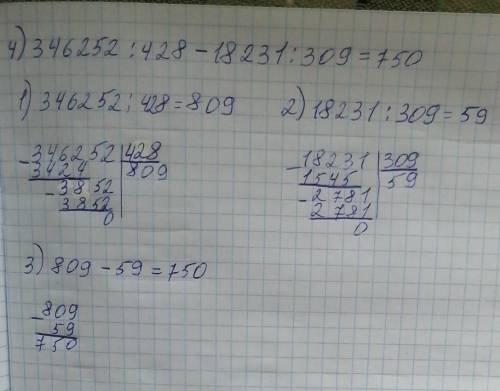 4) 346252 : 428 - 18231 : 309 = 750
1) 346252 : 428 = 809
-346252 | 428
3424 | 809
-3852
3852
0
2) 18231 : 309 = 59
-18231 | 309
1545 | 59
-2781
2781
0
3) 809 - 59 = 750
-809
59
750